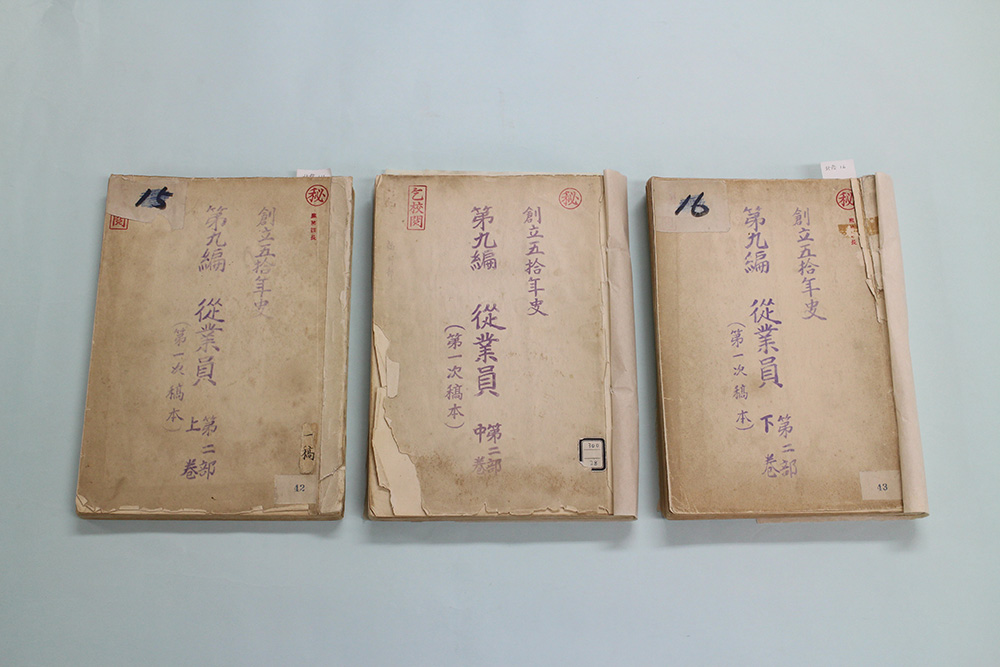 15
秘
閲
創立五拾年史
第九編 從業員
(第一次稿本)
第二部
上巻
一稿
42
乞校閲
秘
創立五拾年史
第九編 從業員
(第一次稿本)
第二部
中巻
16
秘
創立五拾年史
第九編 從業員
(第一次稿本)
第二部
下巻
43